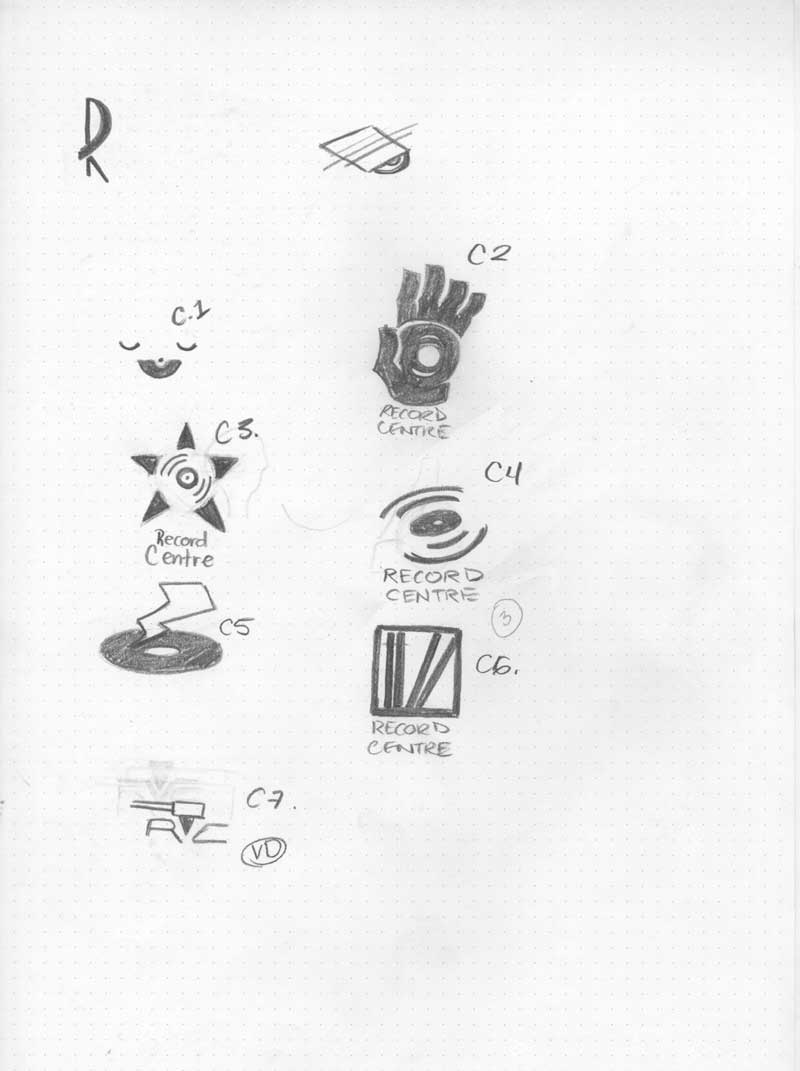 R
C2
C.1
RECORD
CENTRE
C3.
Record
Centre
C4
RECORD
CENTRE
3
C5
C6.
RECORD
CENTRE
C7.
RC
VD